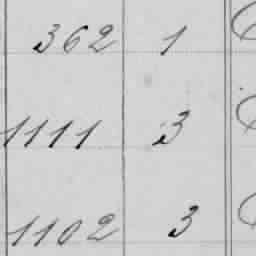 362 1
1111 3
1102 3